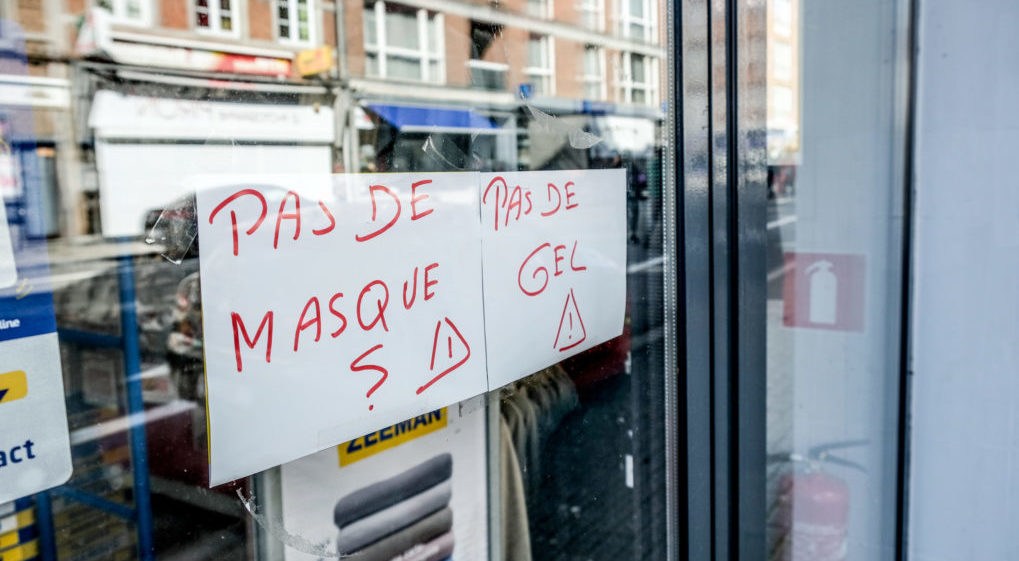 PAS DE
MASQUE
S
PAS DE
GEL
!
ZEEMAN
line
act